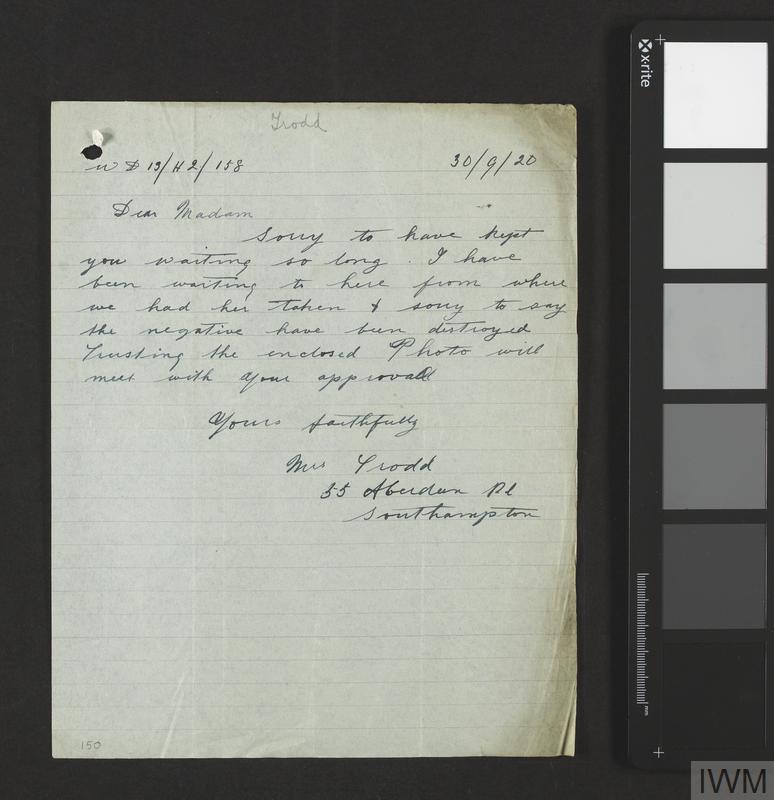 Trodd
W D 13/H2/158 30/9/20
Dear Madam
Sorry to have kept
you waiting so long. I have
been waiting to here from where
we had her taken & sorry to say
the negative have been destroyed
Trusting the enclosed Photo will
meet with your approval
Yours faithfully
Mrs Trodd
55 Aberdeen Rd
Southampton
150
x·rite
mm
IWM